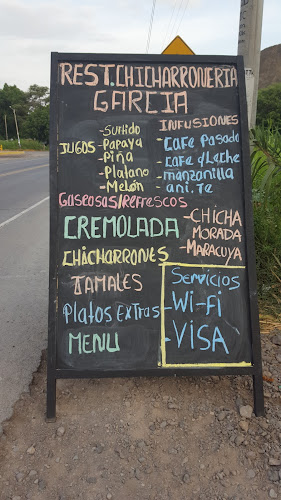 REST.CHICHARRONERIA
GARCIA
JUGOS
-Surtido
-Papaya
-Piña
-Platano
-Melón
INFUSIONES
-Cafe Pasado
-cafe c/Leche
-manzanilla
-ani. Te
Gaseosas/Refrescos
-CHICHA
MORADA
-MARACUYA
CREMOLADA
CHICHARRONES
TAMALES
Platos Extras
MENU
Servicios
-Wi-Fi
-VISA